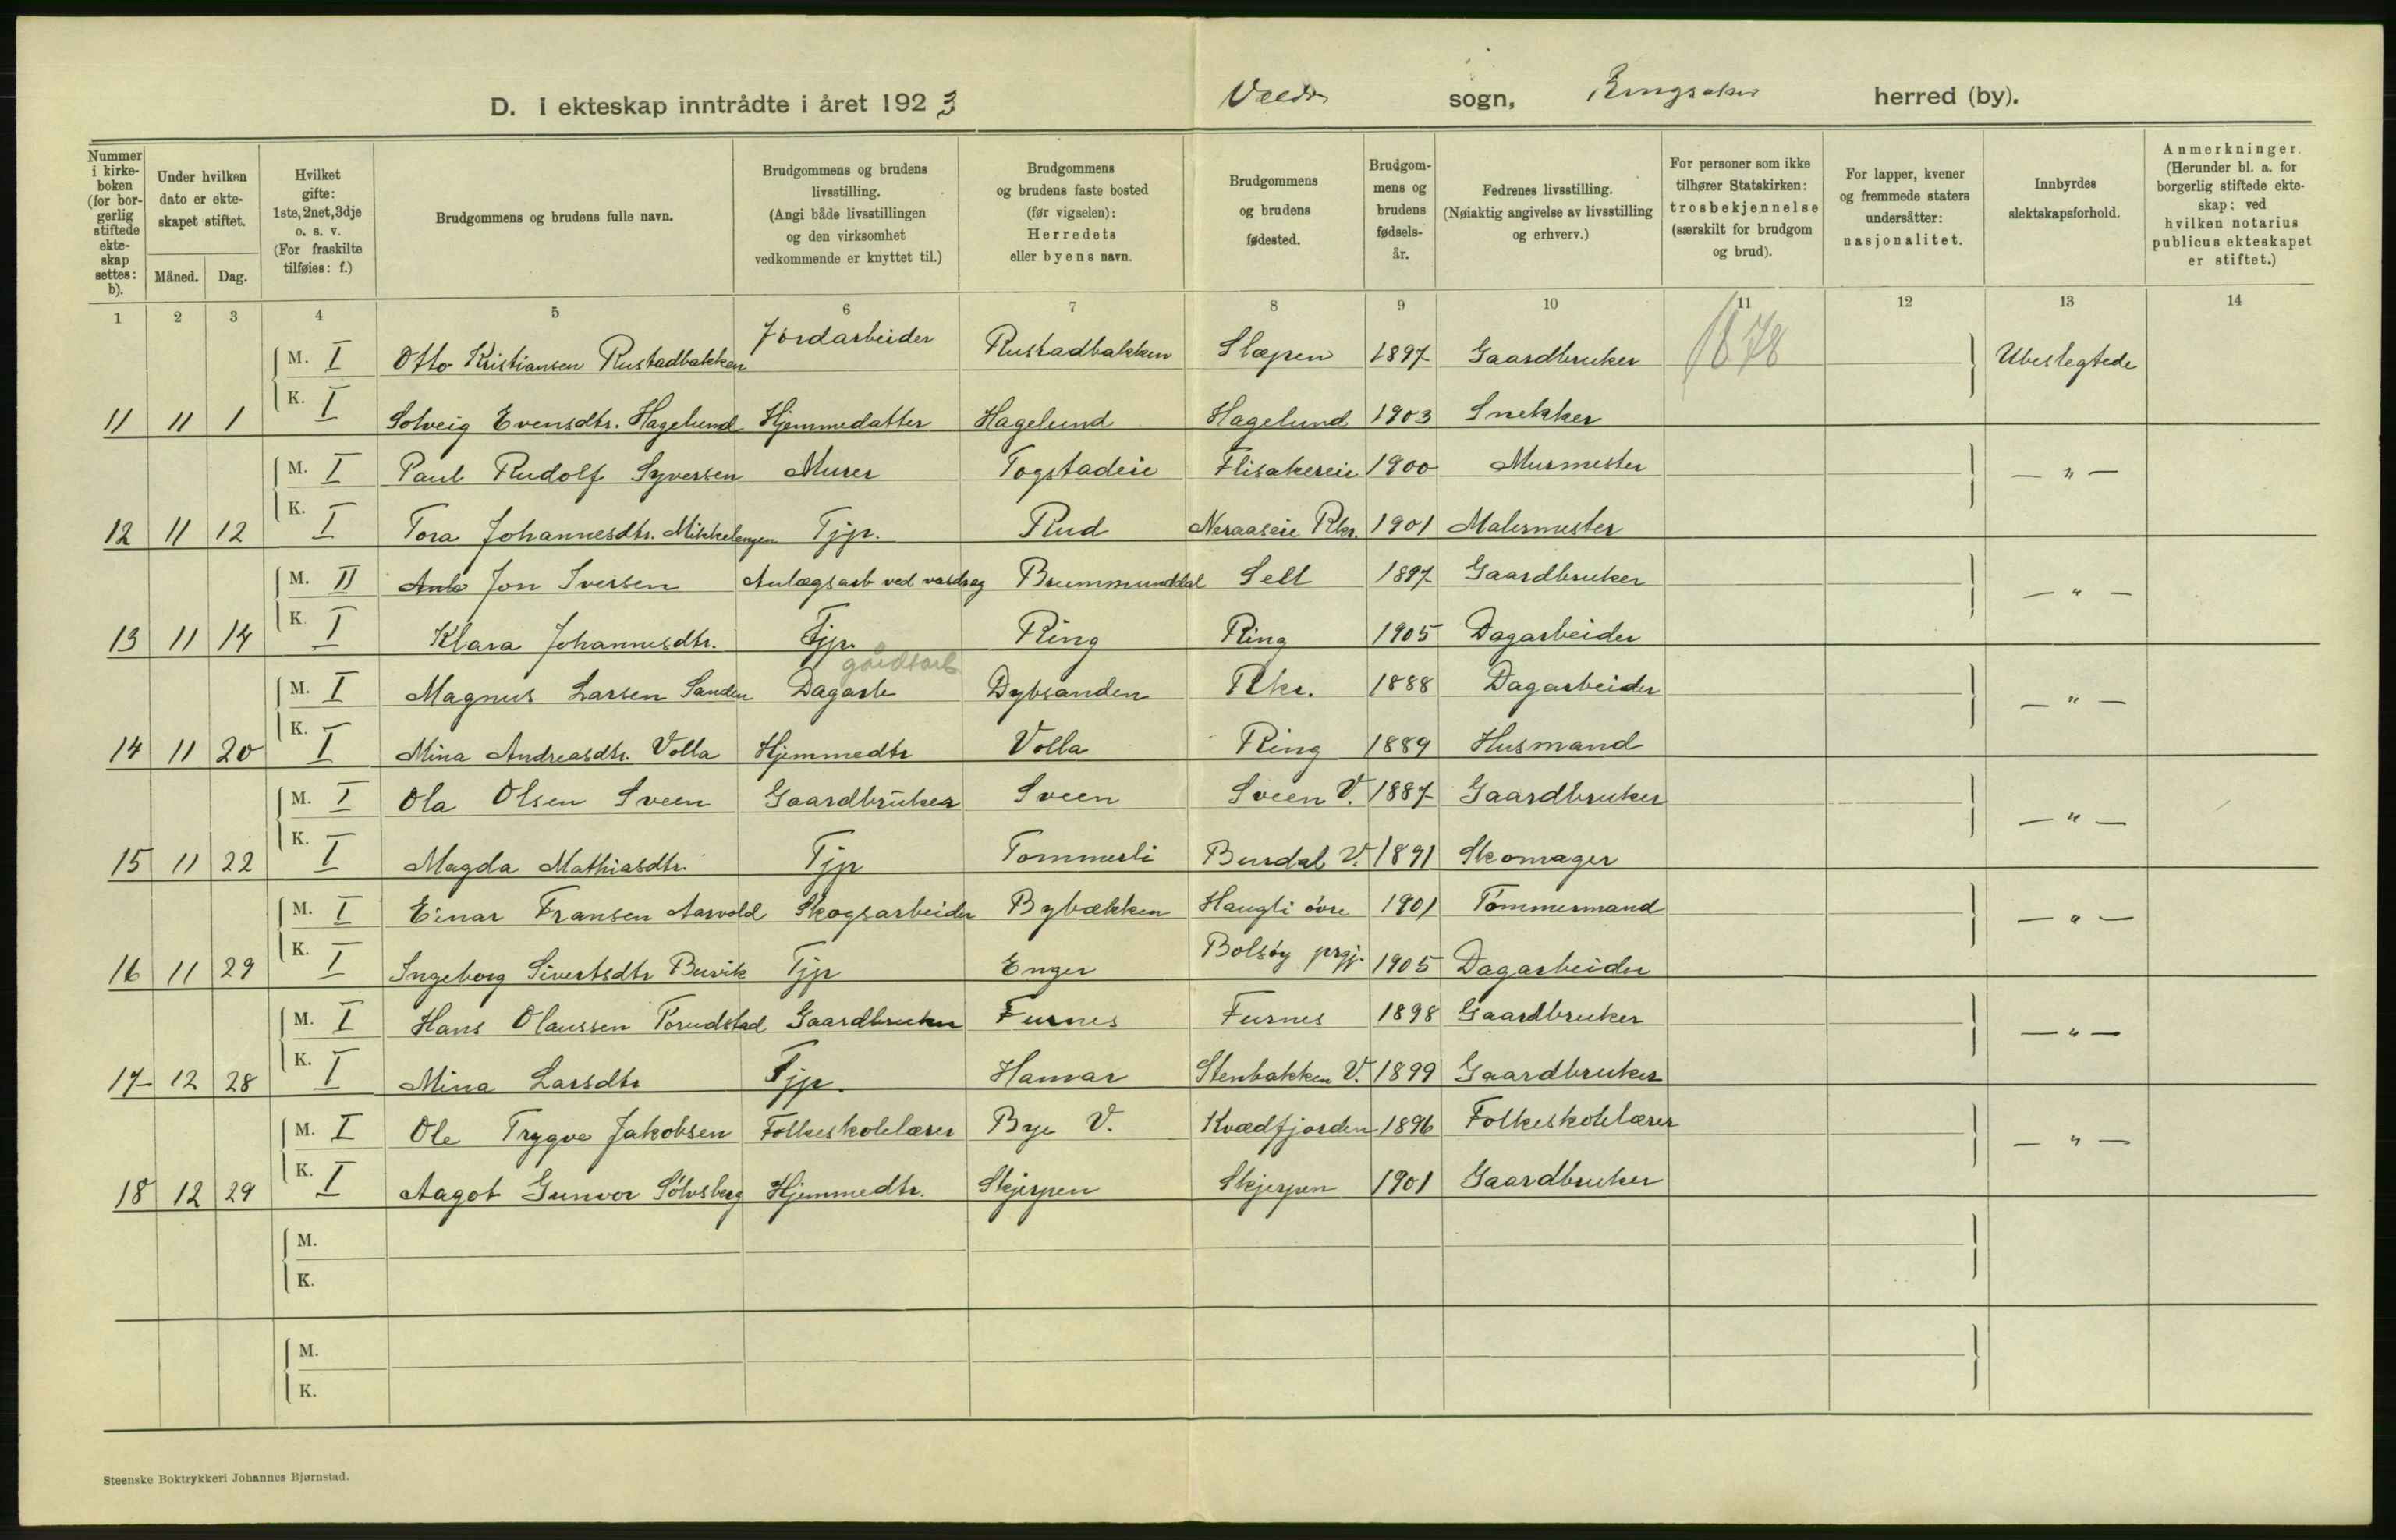 D. I ekteskap inntrådte i året 1923 sogn, Ringsaker herred (by).
Nummer i kirkeboken (for borgerlig stiftede ekteskap settes: b).
Under hvilken dato er ekteskapet stiftet.
Måned. Dag.
Hvilket gifte: 1ste, 2net, 3dje o. s. v. (For fraskilte tilføies: f.)
Brudgommens og brudens fulle navn.
Brudgommens og brudens livsstilling. (Angi både livsstillingen og den virksomhet vedkommende er knyttet til.)
Brudgommens og brudens faste bosted (før vigselen): Herredets eller byens navn.
Brudgommens og brudens fødested.
Brudgommens og brudens fødselsår.
Fedrenes livsstilling. (Nøiaktig angivelse av livsstilling og erhverv.)
For personer som ikke tilhører Statskirken: trosbekjennelse (særskilt for brudgom og brud).
For lapper, kvener og fremmede staters undersåtter: nasjonalitet.
Innbyrdes slektskapsforhold.
Anmerkninger. (Herunder bl. a. for borgerlig stiftede ekteskap: ved hvilken notarius publicus ekteskapet er stiftet.)
1 2 3 4 5 6 7 8 9 10 11 12 13 14
M. I Otto Kristiansen Rustadbakken Jordarbeider Rustadbakken Slæpen 1897 Gaardbruker 1678 Ubeslegtede
11 11 1 K. I Solveig Evensdtr. Hagelund Hjemmedatter Hagelund Hagelund 1903 Snekker
M. I Paul Rudolf Syversen Murer Togstadeie Flisakereie 1900 Murmester — " —
12 11 12 K. I Tora Johannesdtr. Mikkelengen Tjp. Rud Neraaseie Rkr. 1901 Malermester
M. II Jon Iversen Anlægsarb ved vasdrag Brummunddal Sell 1897 Gaardbruker — " —
13 11 14 K. I Klara Johannesdtr. Tjp. Ring Ring 1905 Dagarbeider
gårdsarb
M. I Magnus Larsen Sanden Dagarb Dybsanden Rkr. 1888 Dagarbeider — " —
14 11 20 K. I Mina Andreasdtr. Volla Hjemmedtr Volla Ring 1889 Husmand
M. I Ola Olsen Sveen Gaardbruker Sveen Sveen V. 1887 Gaardbruker — " —
15 11 22 K. I Magda Mathiasdtr. Tjp Tommerli Burdal V. 1891 Skomager
M. I Einar Fransen Aarvold Skogsarbeider Bybækken Haugli øvre 1901 Tømmermand — " —
16 11 29 K. I Ingeborg Sivertsdtr Buvik Tjp Enger Bolsøy prgj. 1905 Dagarbeider
M. I Hans Olaussen Porudstad Gaardbruker Furnes Furnes 1898 Gaardbruker — " —
17 12 28 K. I Mina Larsdtr Tjp. Hamar Stenbakken V. 1899 Gaardbruker
M. I Ole Trygve Jakobsen Folkeskolelærer Bye V. Kvædfjorden 1896 Folkeskolelærer — " —
18 12 29 K. I Aagot Gunvor Sølvsberg Hjemmedtr. Skjerpen Skjerpen 1901 Gaardbruker
M.
K.
M.
K.
Steenske Boktrykkeri Johannes Bjørnstad.